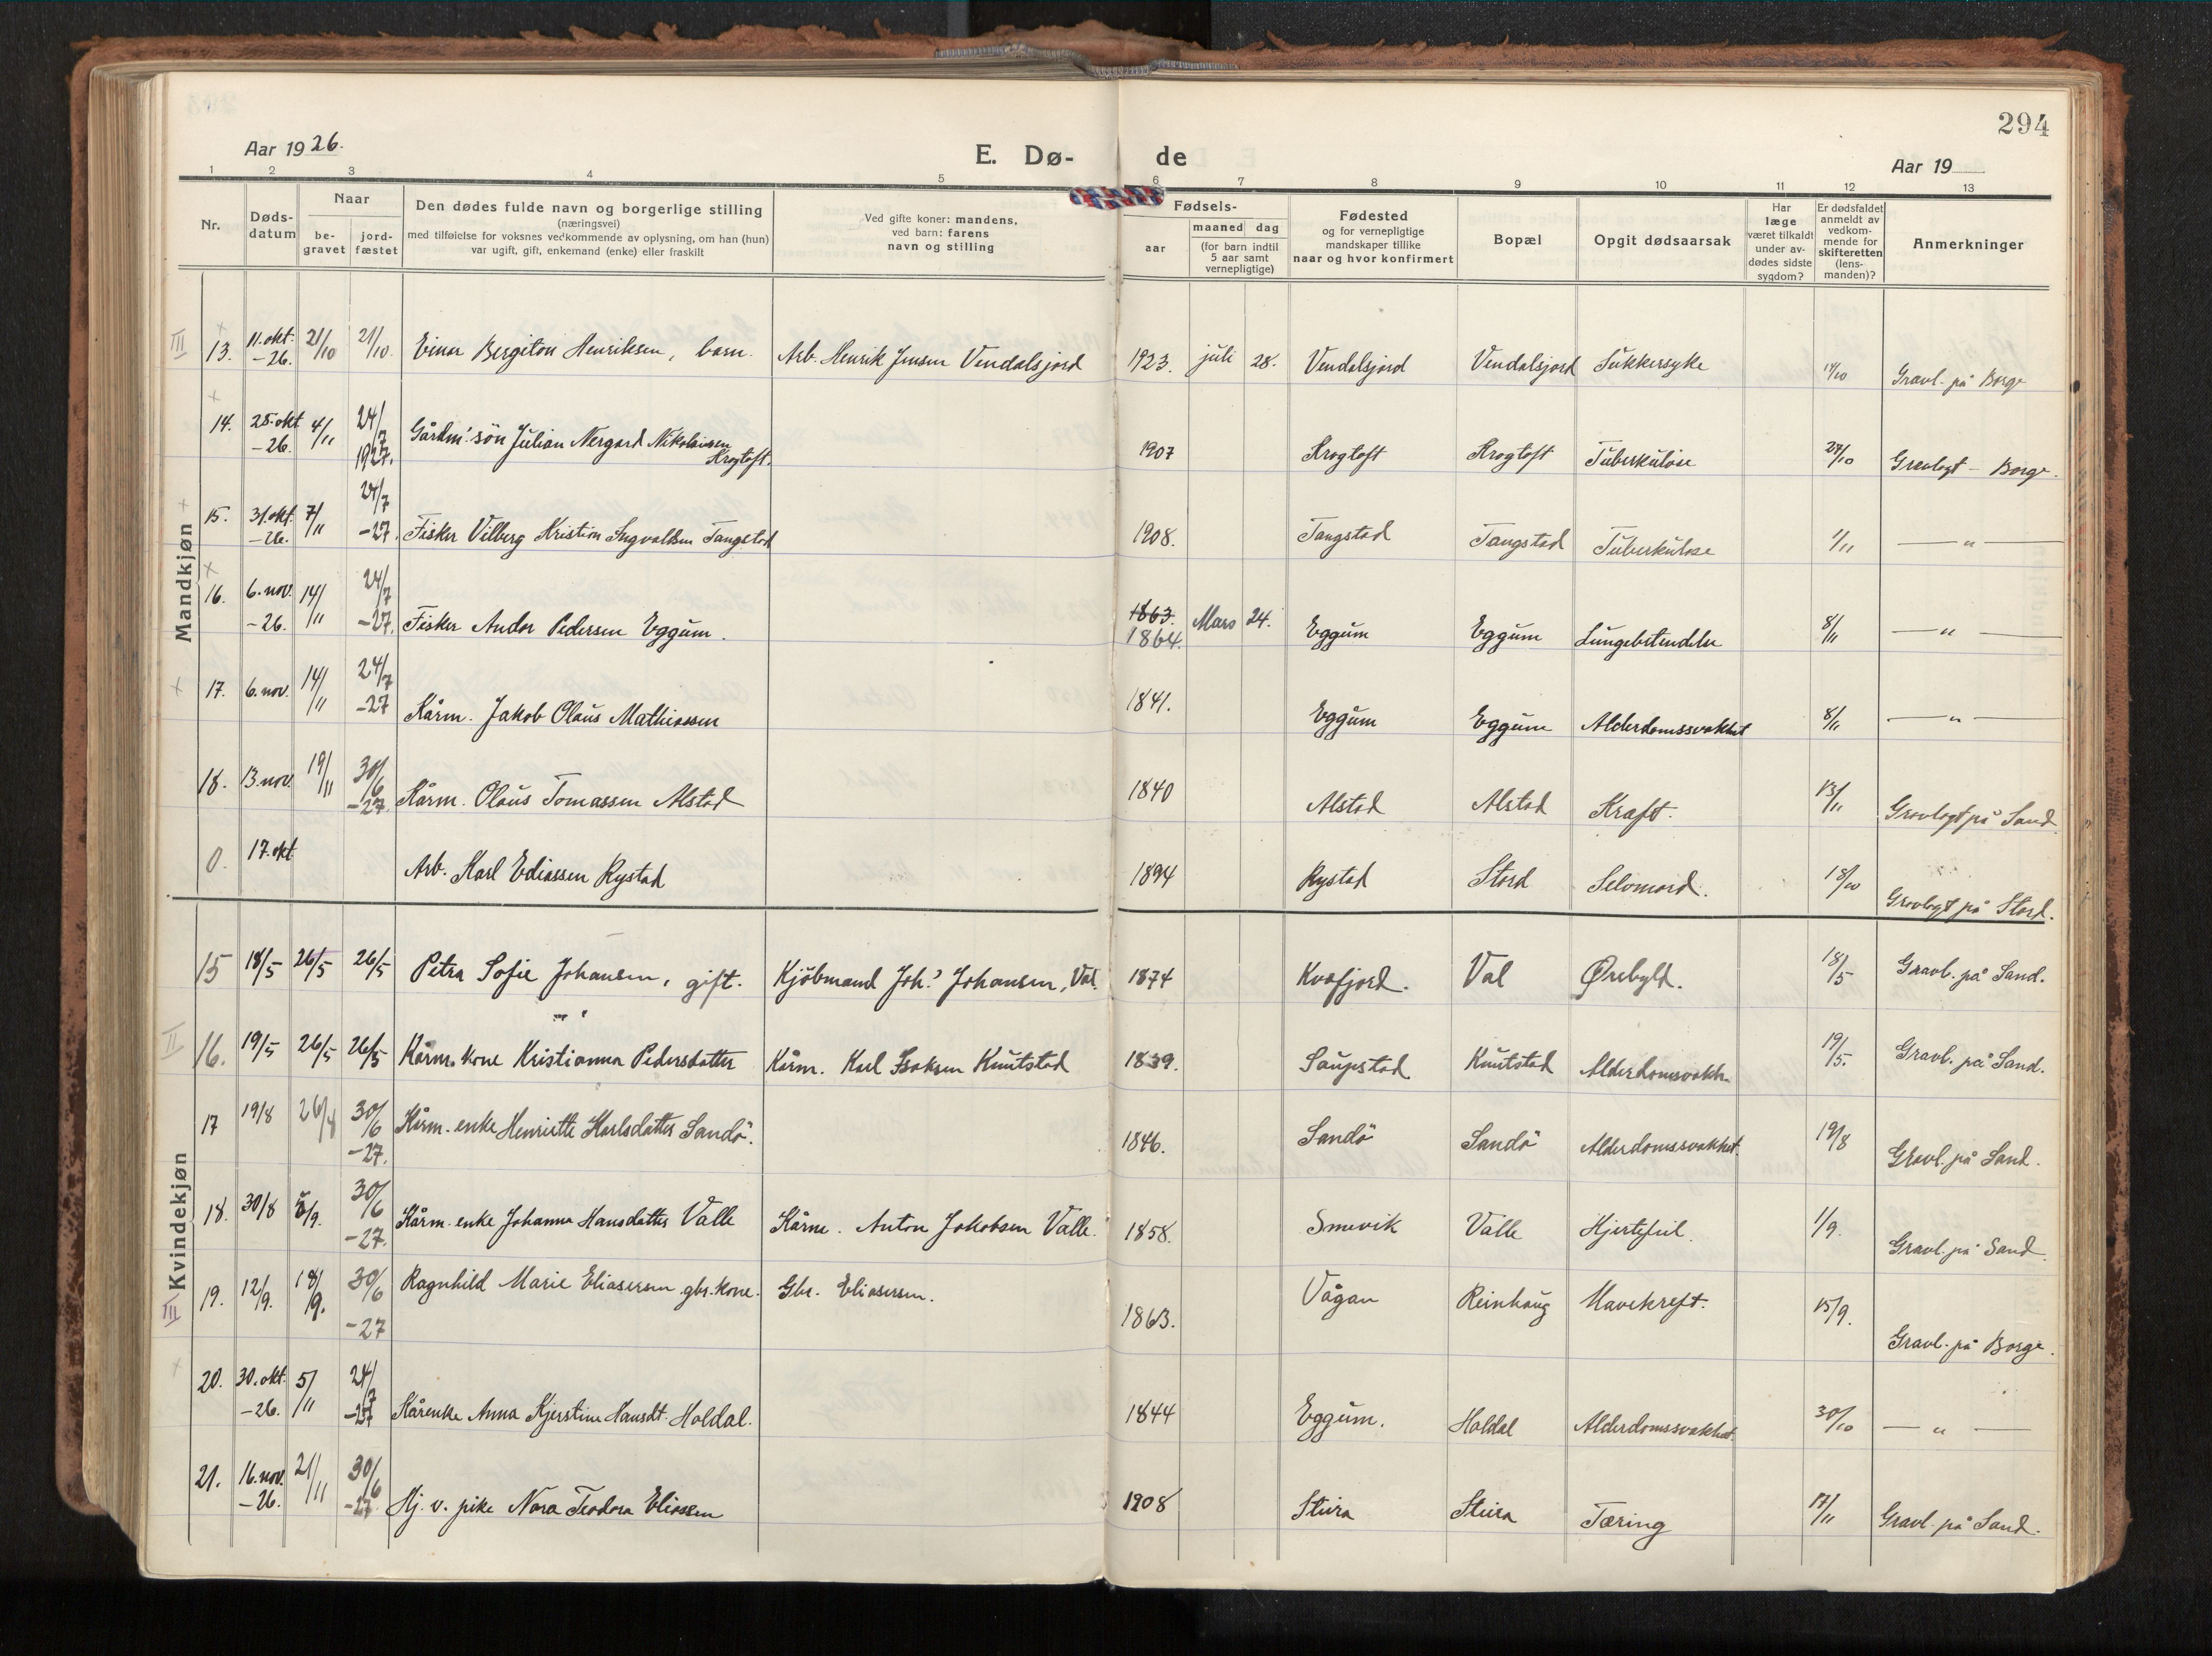 294
Aar 1926.
E. Dø-
de
Aar 19
1 2 3 4 5 6 7 8 9 10 11 12 13
Nr.
Døds-
datum
Naar
be-
gravet
jord-
fæstet
Den dødes fulde navn og borgerlige stilling
(næringsvei)
med tilføielse for voksnes vedkommende av oplysning, om han (hun)
var ugift, gift, enkemand (enke) eller fraskilt
Ved gifte koner: mandens,
ved barn: farens
navn og stilling
Fødsels-
aar
maaned dag
(for barn indtil
5 aar samt
vernepligtige)
Fødested
og for vernepligtige
mandskaper tillike
naar og hvor konfirmert
Bopæl
Opgit dødsaarsak
Har
læge
været tilkaldt
under av-
dødes sidste
sygdom?
Er dødsfaldet
anmeldt av
vedkom-
mende for
skifteretten
(lens-
manden)?
Anmerkninger
Mandkjøn
III
13. 11. okt. -26. 21/10 21/10. Einar Bergiton Henriksen, barn. Arb. Henrik Jensen Vendalsjord 1923. juli 28. Vendalsjord Vendalsjord Sukkersyke 14/10 Gravl. på Borge
14. 25. okt -26. 4/11 24/7 1927. Gårdm. sön Julian Nergard Nikolaisen
Krogtoft. 1907 Krogtoft Krogtoft Tuberkulose 27/10 Gravlagt - Borge.
15. 31. okt. -26. 7/11 24/7 -27. Fisker Vilberg Kristian Ingvaldsen Tangstad 1908. Tangstad Tangstad Tuberkulose 1/11 — " —
16. 6. nov. -26. 14/11 24/7 -27. Fisker Andor Pedersen Eggum. 1863. 1864. Mars 24. Eggum Eggum Lungebetendelse 8/11 — " —
17. 6. nov. 14/11 24/7 -27 Kårm. Jakob Olaus Mathiassen 1841. Eggum Eggum Alderdomssvakhet 8/11 — " —
18. 13. nov. 19/11 30/6 -27. Kårm. Olaus Tomassen Alstad 1840 Alstad Alstad Kræft. 13/11 Gravlagt på Sand
0. 17. okt Arb. Karl Ediassen Rystad 1894 Rystad Stord Selvmord. 18/10 Gravlagt på Stord.
Kvindekjøn
15 18/5 26/5 26/5 Petra Sofie Johansen, gift. Kjöbmand Joh.s Johansen, Val. 1874 Kvæfjord. Val Ørebyld. 18/5 Gravl. på Sand.
II
16. 19/5 26/5 26/5 Kårm. kone Kristianna Pedersdatter Kårm. Karl Isaksen Knutstad 1839. Saupstad Knutstad Alderdomsvakh. 19/5. Gravl. på Sand.
17 19/8 26/8 30/6 -27. Kårm. enke Henriette Karlsdatter Sandö. 1846. Sandö Sandö Alderdomssvakhet. 19/8 Gravl. på Sand.
18. 30/8 5/9. 30/6 -27. Kårm. enke Johanna Hansdatter Valle Kårm. Anton Jakobsen Valle. 1858. Smevik Valle Hjertefeil. 1/9. Gravl. på Sand
III
19. 12/9. 18/9. 30/6 -27 Ragnhild Marie Eliasersen gbr. kone. Gbr. Eliasersen. 1863. Vågan Reinhaug Mavekreft. 15/9. Gravl. på Borge.
20. 30. okt. -26. 5/11 24/7 -27 Kårenke Anna Kjerstine Hansdt. Holdal. 1844 Eggum. Holdal Alderdomssvakhet. 30/10 — " —
21. 16. nov. -26. 21/11 30/6 -27. Hj. v. pike Nora Teodora Eliassen 1908 Stura Stura Tæring 17/11 Gravl. på Sand.